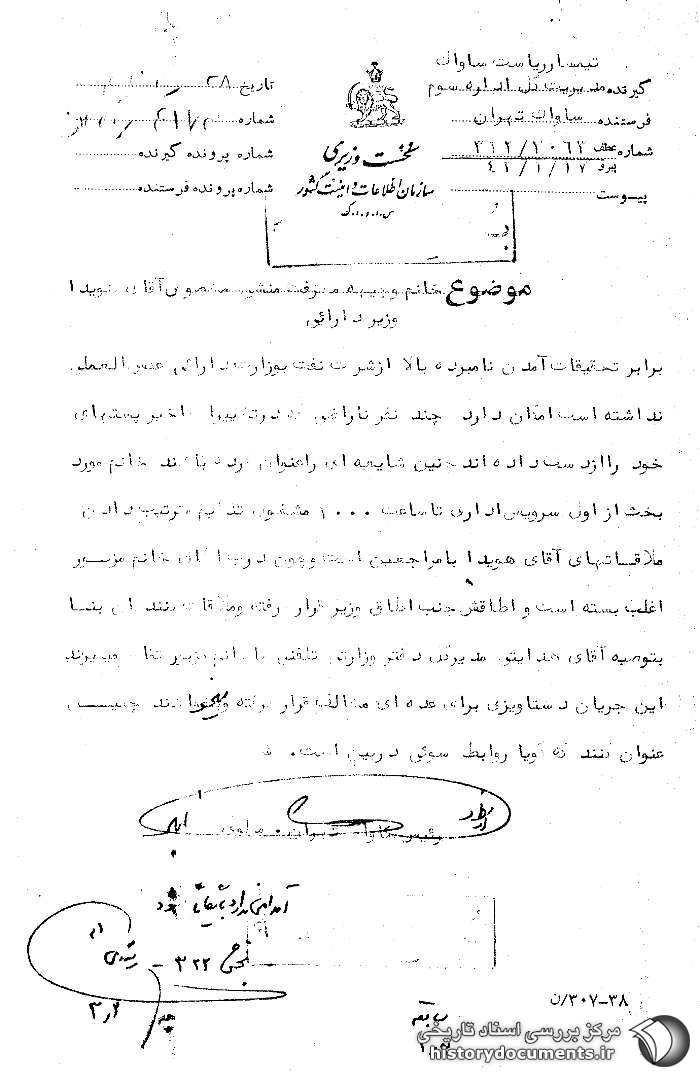 تیمسار ریاست ساواک
گیرنده مدیریت کل اداره سوم
فرستنده ساواک تهران
شماره عطف ۳۱۲/۲۰۶۲
پیرو ۴۲/۱/۱۷
پیوست
نخست وزیری
سازمان اطلاعات و امنیت کشور
س.ا.و.ا.ک
تاریخ ۲۸
شماره
شماره پرونده گیرنده
شماره پرونده فرستنده
موضوع خانم وجیهه معرفت منشی مخصوص آقای هویدا
وزیر دارائی
برابر تحقیقات آمدن نامبرده بالا از شرکت نفت بوزارت دارائی عکس العملی
نداشته است امکان دارد چند نفر ناراضی که در تغییرات اخیر پستهای
خود را از دست داده اند چنین شایعه ای را عنوان کرده باشند خانم مورد
بحث از اول سرویس اداری تا ساعت ۲۰۰۰ مشغول تنظیم و ترتیب دادن
ملاقاتهای آقای هویدا با مراجعین است و چون درب اطاق خانم مزبور
اغلب بسته است و اطاقش جنب اطاق وزیر قرار گرفته و ملاقات کنندگان بنا
بتوصیه آقای مدیرکل دفتر وزارتی تلفنی با خانم مزبور تماس میگیرند
این جریان دستاویزی برای عده ای مخالف قرار گرفته و میخواهند چنین
عنوان کنند که گویا روابط سوئی در بین است.
رئیس ساواک تهران. مولوی
اقدامی ندارد بایگانی شود
۳۲۲
۳۰۷-۳۸/ن
مرکز بررسی اسناد تاریخی
historydocuments.ir